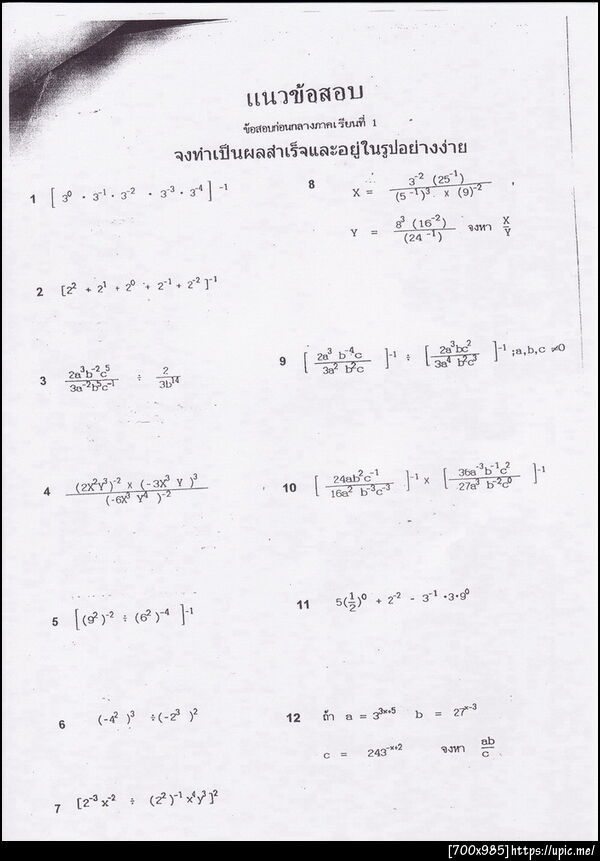 แนวข้อสอบ
ข้อสอบก่อนกลางภาคเรียนที่ 1
จงทำเป็นผลสำเร็จและอยู่ในรูปอย่างง่าย
1 [ 3⁰ · 3⁻¹ · 3⁻² · 3⁻³ · 3⁻⁴ ] ⁻¹
2 [2² + 2¹ + 2⁰ + 2⁻¹ + 2⁻² ]⁻¹
3 2a³b⁻²c⁵ / 3a⁻²b⁵c⁻¹ ÷ 2 / 3b¹⁴
4 (2X²Y³)⁻² x (-3X³ Y )³ / (-6X³ Y⁴ )⁻²
5 [(9²)⁻² ÷ (6²)⁻⁴ ]⁻¹
6 (-4² )³ ÷(-2³ )²
7 [2⁻³ x⁻² ÷ (2²)⁻¹ x⁴y³]²
8 X = 3⁻² (25⁻¹) / (5⁻¹)³ x (9)⁻²
Y = 8³ (16⁻²) / (24⁻¹) จงหา X/Y
9 [ 2a³ b⁻⁴c / 3a² b²c ]⁻¹ ÷ [ 2a³bc² / 3a⁴ b²c³ ]⁻¹ ;a,b,c ≠0
10 [ 24ab²c⁻¹ / 16a² b⁻³c⁻³ ]⁻¹ x [ 36a⁻³b⁻¹c² / 27a³ b⁻²c⁰ ]⁻¹
11 5(1/2)⁰ + 2⁻² - 3⁻¹ ·3·9⁰
12 ถ้า a = 3³ˣ⁺⁵ b = 27ˣ⁻³
c = 243⁻ˣ⁺² จงหา ab/c
[700x985]https://upic.me/